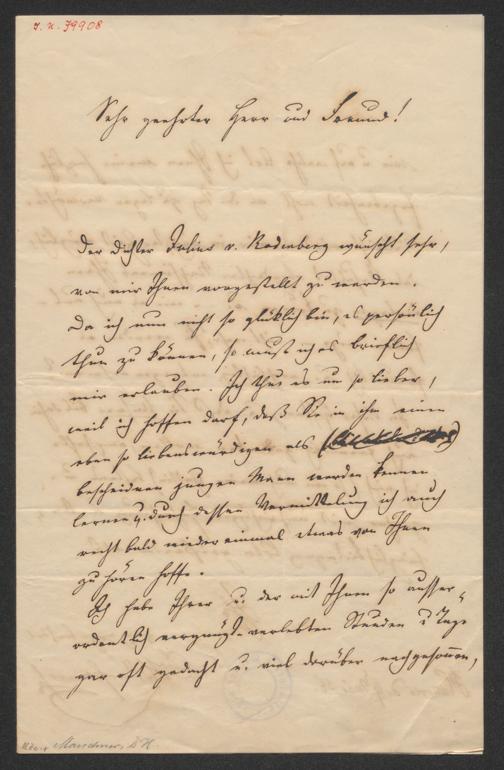 I. N. 79908
Sehr geehrter Herr und Freund!
Der Dichter Julius v. Rodenberg wünscht sehr,
von mir Ihnen vorgestellt zu werden.
Da ich nun nicht so glücklich bin, es persönlich
thun zu können, so muß ich es brieflich
mir erlauben. Ich thue es um so lieber,
weil ich hoffen darf, daß Sie in ihm einen
eben so liebenswürdigen als
bescheidnen jungen Mann werden kennen
lernen u. durch dessen Vermittelung ich auch
recht bald wieder einmal etwas von Ihnen
zu hören hoffe.
Ich habe Ihrer u. der mit Ihnen so ausser-
ordentlich vergnügt verlebten Stunden u Tage
gar oft gedacht u. viel darüber nachgesonnen,
Marschner, H.